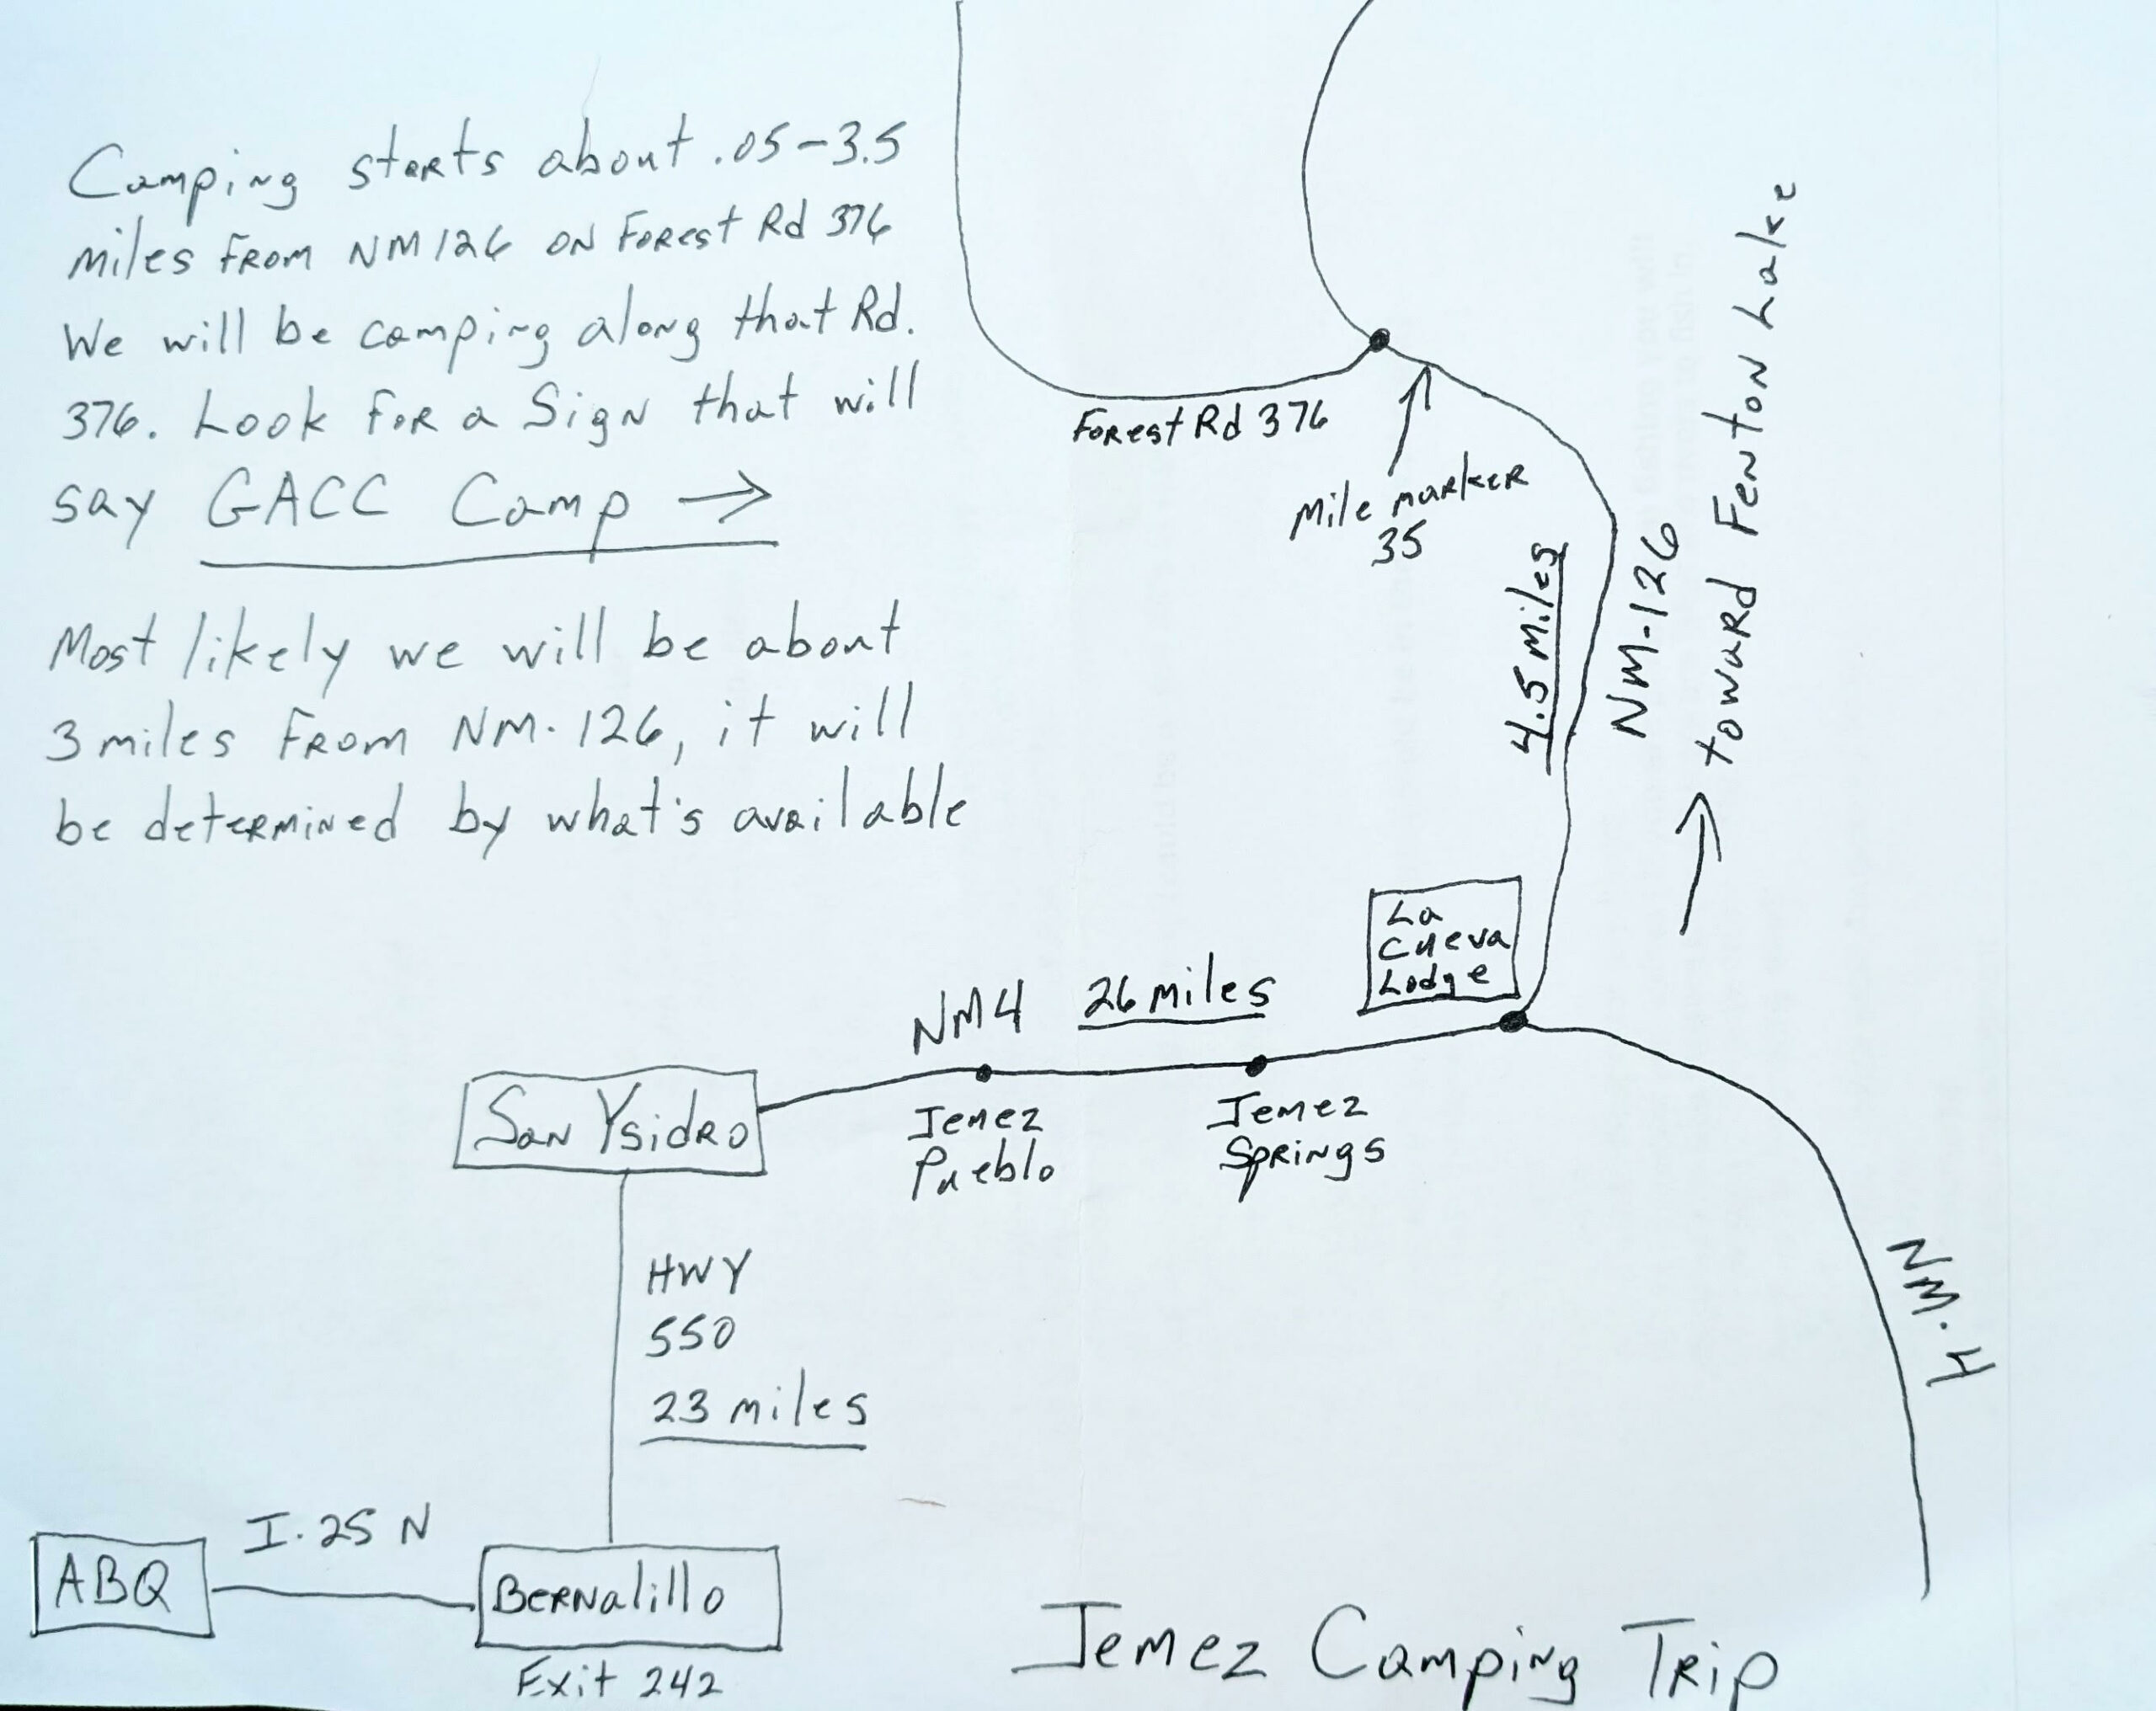 Camping starts about .05-3.5
miles from NM126 on Forest Rd 376
We will be camping along that Rd.
376. Look for a Sign that will
say GACC Camp →
Most likely we will be about
3 miles from NM.126, it will
be determined by what's available
Forest Rd 376
Mile marker
35
4.5 miles
NM-126
→ toward Fenton Lake
La
Cueva
Lodge
NM4 26 miles
San Ysidro
Jemez
Pueblo
Jemez
Springs
NM.4
HWY
550
23 miles
I.25 N
ABQ
Bernalillo
Exit 242
Jemez Camping Trip